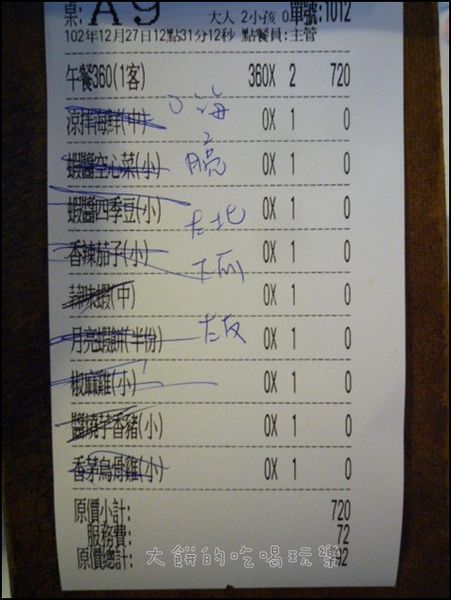 桌: A9 大人 2小孩 0單號:1012
102年12月27日12點31分12秒 點餐員:主管
午餐360(1客) 360X 2 720
涼拌海鮮(中) 0X 1 0
蝦醬空心菜(小) 0X 1 0
蝦醬四季豆(小) 0X 1 0
香辣茄子(小) 0X 1 0
辣味蝦(中) 0X 1 0
月亮蝦餅(半份) 0X 1 0
椒麻雞(小) 0X 1 0
醬燒芋香豬(小) 0X 1 0
香茅烏骨雞(小) 0X 1 0
原價小計: 720
服務費: 72
原價總計: 92
大餅的吃喝玩樂